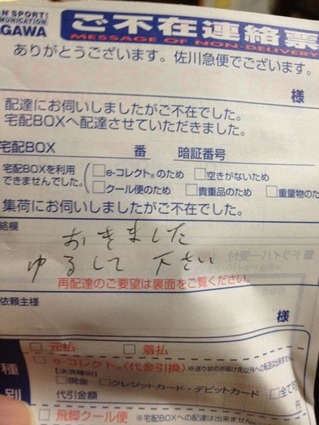 N SPORT
MUNICATION
GAWA
ご不在連絡票
MESSAGE OF NON-DELIVERY
ありがとうございます。佐川急便でございます。
様
配達にお伺いしましたがご不在でした。
宅配BOXへ配達させていただきました。
宅配BOX 番 暗証番号
宅配BOXを利用できませんでした。
□e-コレクトのため □空きがないため
□クール便のため □貴重品のため □重量物の
集荷にお伺いしましたがご不在でした。
絡欄
おきました
ゆるして下さい
再配達のご要望は裏面をご覧ください。
依頼主様
様
□元払 □着払
種別
□e-コレクト(代金引換)
[決済種別]
□現金 □クレジットカード・デビットカード □全て可
代引金額 円
□飛脚クール便 ※宅配BOXへの配達は出来ません。